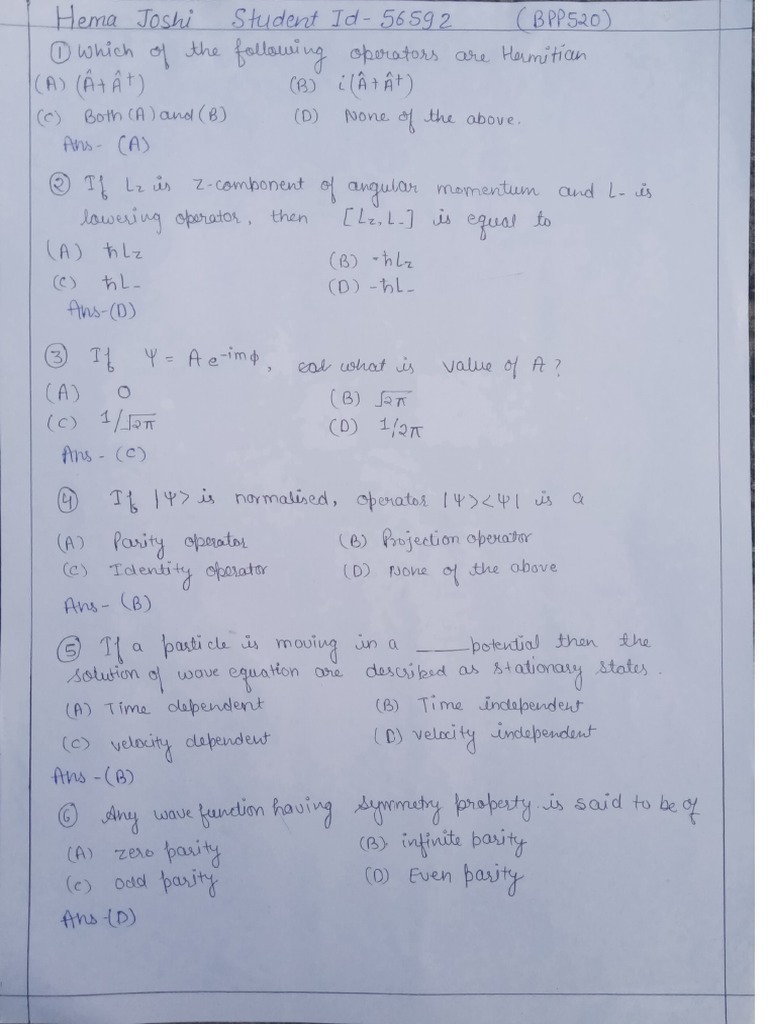 Hema Joshi Student Id - 56592 (BPP520)
① Which of the following operators are Hermitian
(A) (Â + Â†) (B) i(Â + Â†)
(C) Both (A) and (B) (D) None of the above.
Ans - (A)
② If Lz is z-component of angular momentum and L- is
lowering operator, then [Lz, L-] is equal to
(A) ħLz (B) -ħLz
(C) ħL- (D) -ħL-
Ans-(D)
③ If Ψ = A e^-imϕ, what is value of A?
(A) 0 (B) √2π
(C) 1/√2π (D) 1/2π
Ans - (C)
④ If |Ψ> is normalised, operator |Ψ><Ψ| is a
(A) Parity operator (B) Projection operator
(C) Identity operator (D) None of the above
Ans - (B)
⑤ If a particle is moving in a ____ potential then the
solution of wave equation are described as stationary states.
(A) Time dependent (B) Time independent
(C) velocity dependent (D) velocity independent
Ans - (B)
⑥ Any wave function having symmetry property is said to be of
(A) zero parity (B) infinite parity
(C) odd parity (D) Even parity
Ans-(D)